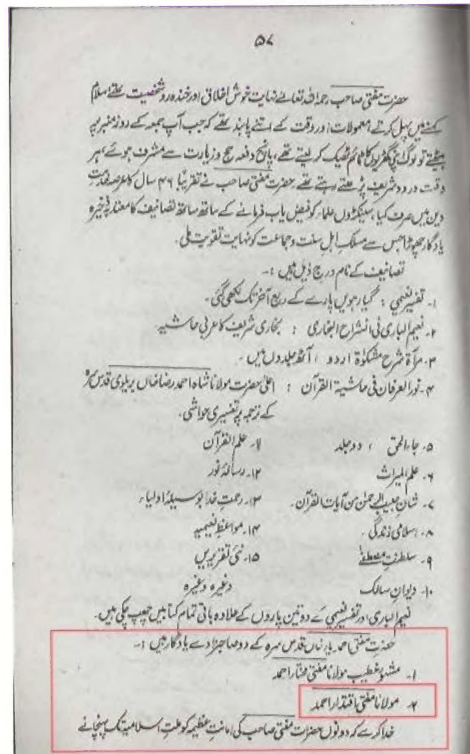 ۵۷
حضرت مفتی صاحب رحمۃ اللہ تعالےٰ نہایت خوش اخلاق اور خندہ رو شخصیت تھے سلام
کہنے میں پہل کرتے معمولات اور وقت کے اتنے پابند تھے کہ جب آپ جمعہ کے روز منبر پر
بیٹھتے تو لوگ اپنی گھڑیوں کا ٹائم ٹھیک کر لیتے تھے، پانچ دفعہ حج و زیارت سے مشرف ہوئے ہر
وقت درود شریف پڑھتے رہتے تھے حضرت مفتی صاحب نے تقریباً ۴۶ سال کا عرصہ خدمتِ
دین میں صرف کیا، سینکڑوں علماء کو فیض یاب فرمانے کے ساتھ ساتھ تصانیف کا معتد بہ ذخیرہ
یادگار چھوڑا جس سے مسلکِ اہلِ سنت و جماعت کو نہایت تقویت ملی۔
تصانیف کے نام درج ذیل ہیں :-
۱- تفسیر نعیمی : گیارہویں پارے کے ربع آخر تک لکھی گئی۔
۲- نعیم الباری فی انشراح البخاری : بخاری شریف کا عربی حاشیہ
۳- مرآۃ شرح مشکوٰۃ اردو ، آٹھ جلدوں میں۔
۴- نور العرفان فی حاشیۃ القرآن : اعلیٰ حضرت مولانا شاہ احمد رضا خاں بریلوی قدس سرہ
کے ترجمہ پر تفسیری حواشی۔
۵- جاء الحق ، دو جلد ۱۱- علم القرآن
۶- علم المیراث ۱۲- رسالۂ نور
۷- شانِ حبیب الرحمٰن من آیات القرآن۔ ۱۳- رحمتِ خدا بوسیلۂ اولیاء
۸- اسلامی زندگی۔ ۱۴- مواعظِ نعیمیہ
۹- سلطنتِ مصطفےٰ ۱۵- نئی تقریریں
۱۰- دیوانِ سالک وغیرہ وغیرہ
نعیم الباری اور تفسیر نعیمی کے دو تین پاروں کے علاوہ باقی تمام کتابیں چھپ چکی ہیں۔
حضرت مفتی احمد یار خاں قدس سرہ کے دو صاحبزادے یادگار ہیں :-
۱- مشہور خطیب مولانا مفتی مختار احمد
۲- مولانا مفتی اقتدار احمد
خدا کرے کہ دونوں حضرات مفتی صاحب کی امانتِ عظیمہ کو ملتِ اسلامیہ تک پہنچانے